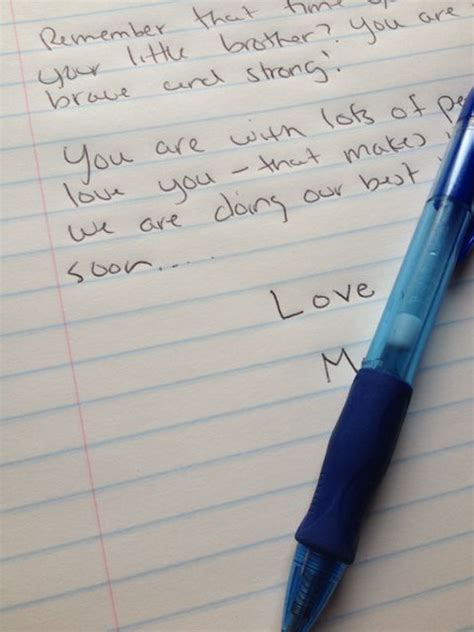 Remember that time
your little brother? You are
brave and strong!
You are with lots of pe
love you - that makes
we are doing our best
soon....
Love
M